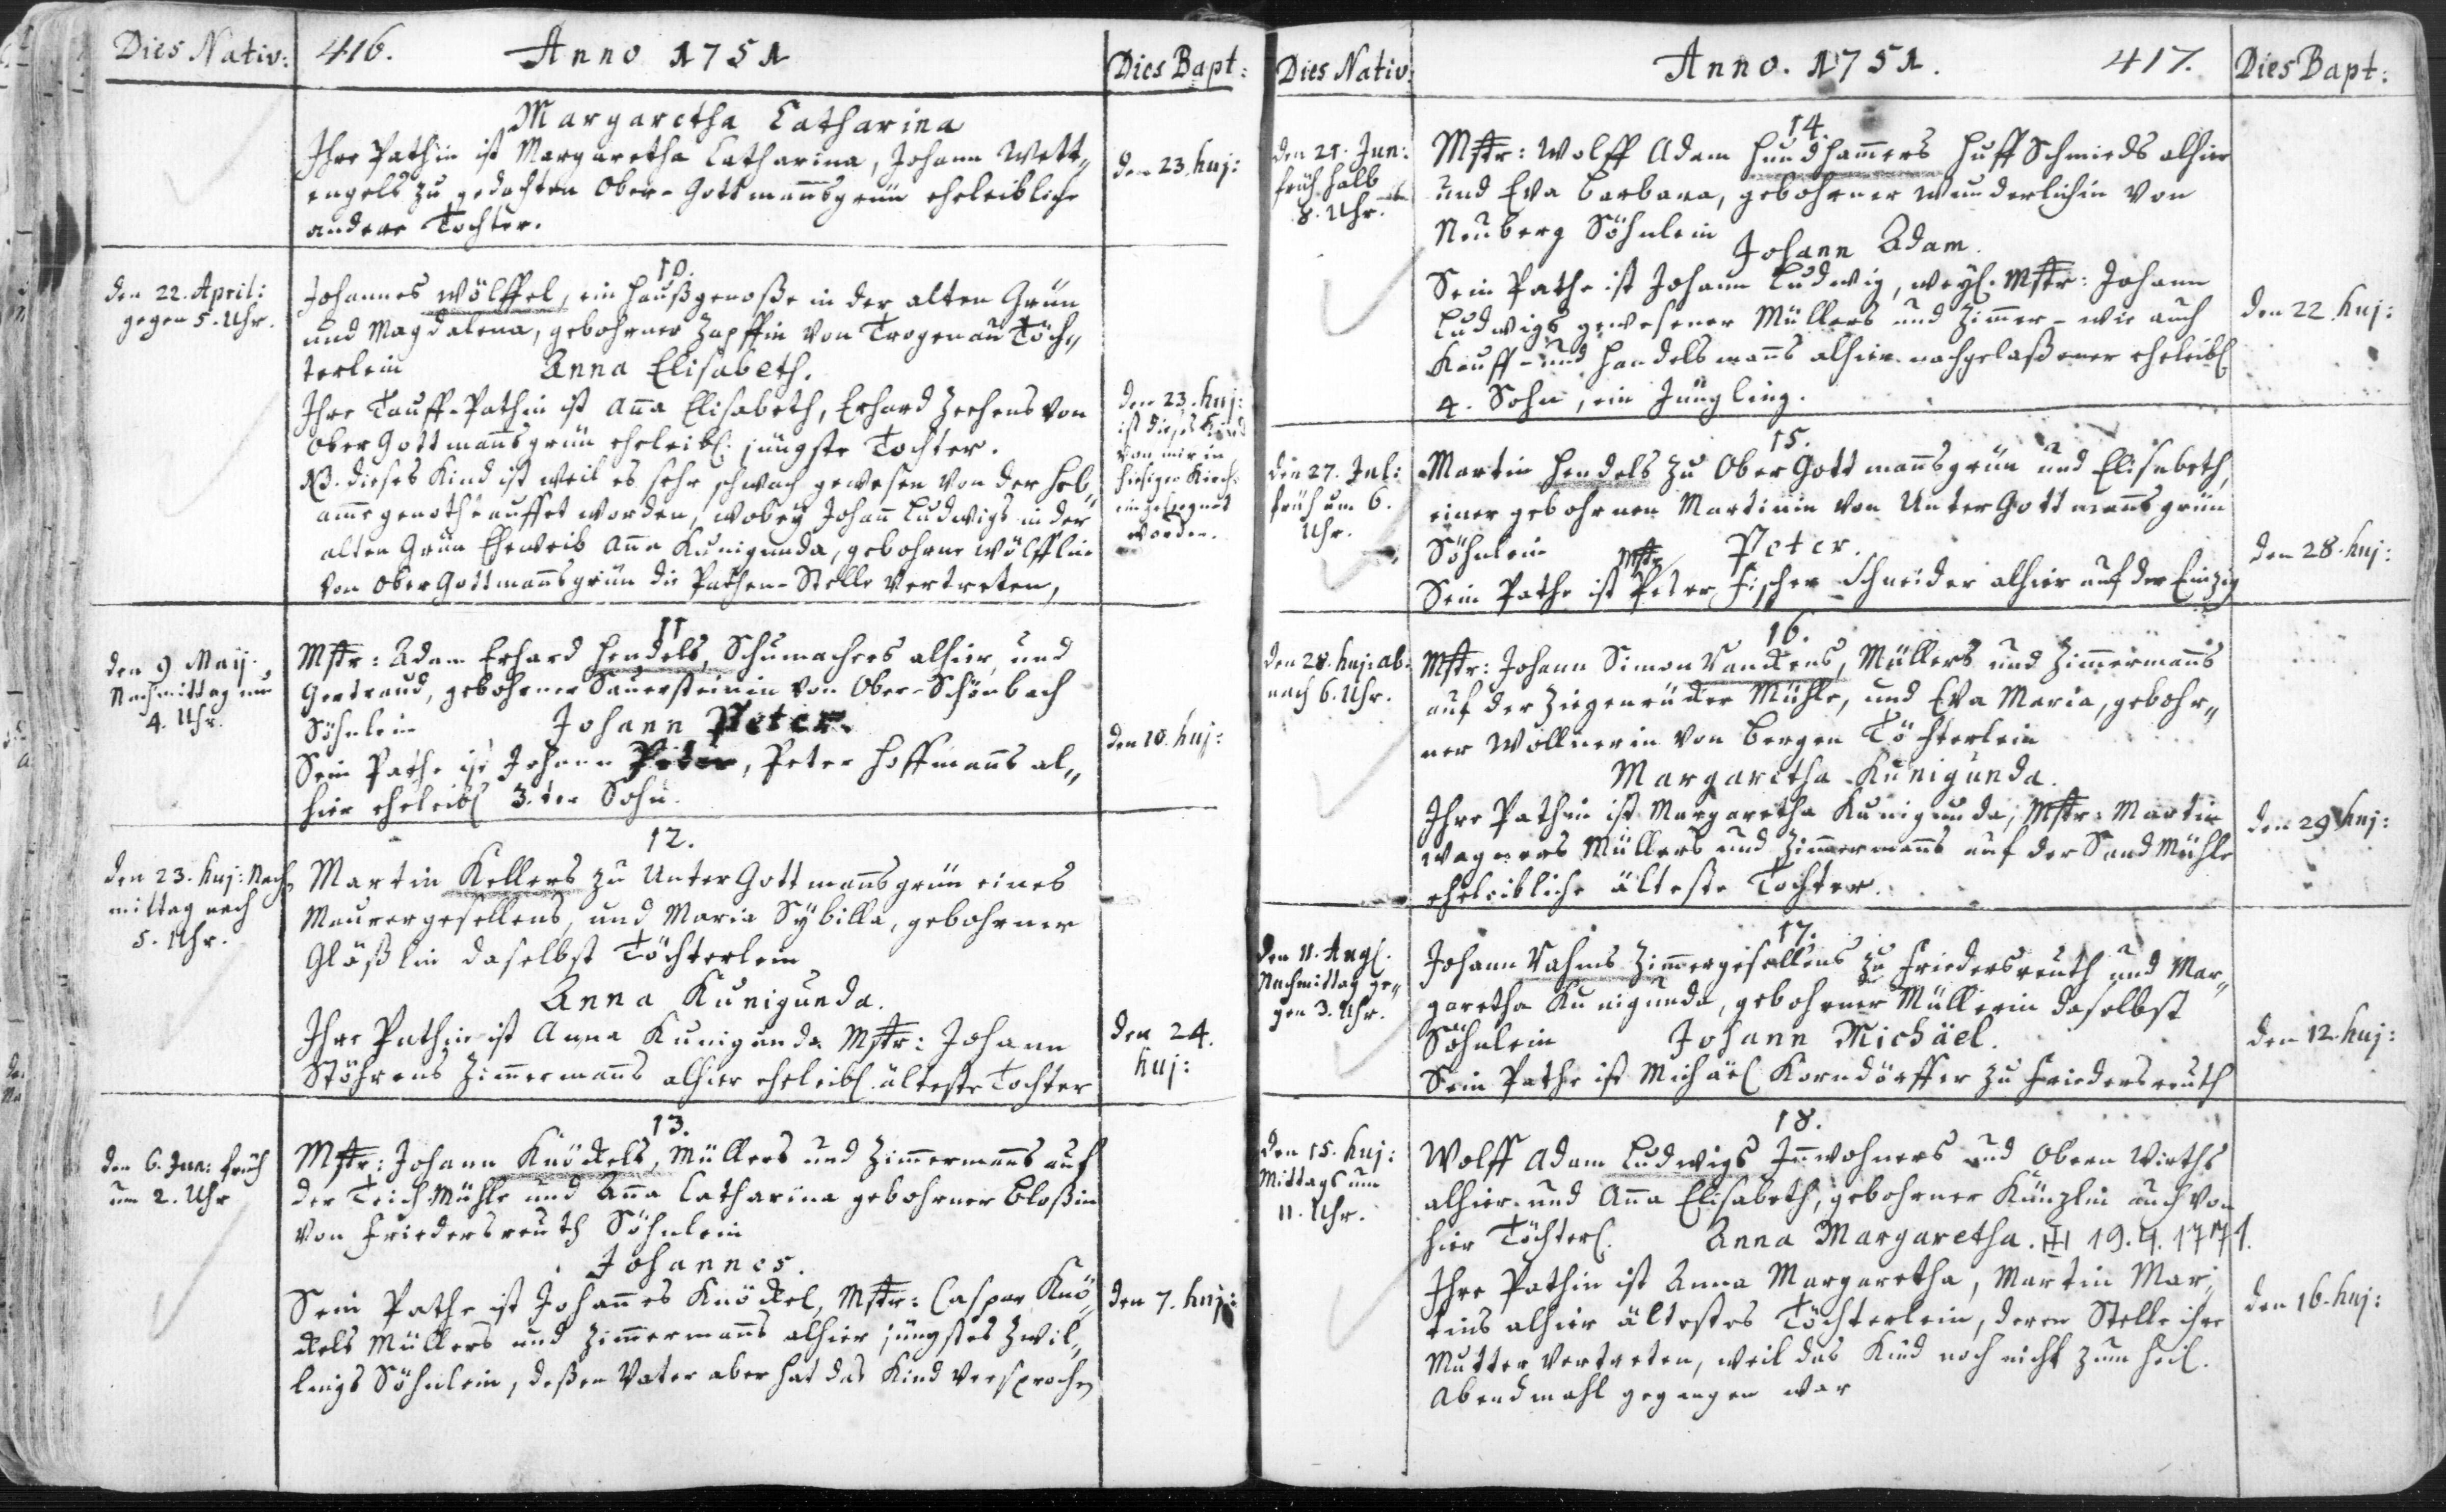 Dies Nativ:
416.
Anno 1751
Dies Bapt:
Margaretha Catharina
Ihre Pathin ist Margaretha Catharina, Johann Wett„
engels zu gedachten Ober-Gottmannsgrün eheleibliche
andere Tochter.
den 23. huj:
den 22. April:
gegen 5. Uhr.
10.
Johannes Wölffel, ein Haußgenoße in der alten Grün
und Magdalena, gebohrner Zapffin von Trogenau Töch„
terlein
Anna Elisabeth.
Ihre Tauff-Pathin ist Anna Elisabeth, Erhard Zeehens von
Ober Gottmannsgrün eheleibl: jüngste Tochter.
NB. dieses Kind ist weil es sehr schwach gewesen von der Heb„
amme genothtaufft worden, wobey Johann Ludwigs in der
alten Grün Eheweib Anna Kunigunda, gebohrne Wölfflin
von Ober Gottmannsgrün die Pathen-Stelle vertreten,
den 23. huj:
ist dieses Kind
von mir in
hiesiger Kirch
eingesegnet
worden.
den 9 Maij.
Nachmittag um
4. Uhr.
11
Mstr: Adam Erhard Hendels, Schumachers alhier, und
Gertraud, gebohrner Sauersteinin von Ober-Schönbach
Söhnlein
Johann Peter.
Sein Pathe ist Johann Peter, Peter Hoffmanns al„
hier eheleibl 3.ter Sohn.
den 10. huj:
den 23. huj: Nach
mittag nach
5. Uhr.
12.
Martin Kellers zu Unter Gottmannsgrün eines
Maurergesellens, und Maria Sybilla, gebohrner
Gläßlin daselbst Töchterlein
Anna Kunigunda.
Ihre Pathin ist Anna Kunigunda Mstr: Johann
Stöhrens Zimmermanns alhier eheleibl. älteste Tochter
den 24.
huj:
den 6. Jun: früh
um 2. Uhr
13.
Mstr: Johann Knöckels, Müllers und Zimmermanns auf
der Teich Mühle und Anna Catharina gebohrner Bloßin
von Friedersreuth Söhnlein
Johannes.
Sein Pathe ist Johannes Knöckel, Mstr: Caspar Knö„
ckels Müllers und Zimmermanns alhier jüngstes Zwil„
lings Söhnlein, deßen Vater aber hat das Kind versprochen
den 7. huj:
Dies Nativ:
Anno. 1751.
417.
Dies Bapt:
den 21. Jun:
früh halb
8. Uhr.
14.
Mstr: Wolff Adam Hundhammers Huff Schmieds alhier
und Eva Barbara, gebohrner Wunderlichin von
Neuberg Söhnlein
Johann Adam.
Sein Pathe ist Johann Ludwig, weyl. Mstr: Johann
Ludwigs gewesener Müllers und Zimmer- wie auch
Kauff- und Handelsmanns alhier nachgelaßener eheleibl
4. Sohn, ein Jüngling.
den 22. huj:
den 27. Jul:
früh um 6.
Uhr.
15.
Martin Hendels zu Ober Gottmannsgrün und Elisabeth,
einer gebohrnen Martinin von Unter Gottmannsgrün
Söhnlein
Peter.
Sein Pathe ist Mstr Peter Fischer Schneider alhier auf der Einzig
den 28. huj:
den 28. huj: ab.
nach 6. Uhr.
16.
Mstr: Johann Simon Vanckens, Müllers und Zimmermanns
auf der Ziegenrücker Mühle, und Eva Maria, gebohr„
ner Wollnerin von Bergen Töchterlein
Margaretha Kunigunda.
Ihre Pathin ist Margaretha Kunigunda, Mstr: Martin
Wagners Müllers und Zimmermanns auf der Sand Mühle
eheleibliche älteste Tochter.
den 29 huj:
den 11. Augl.
Nachmittag ge„
gen 3. Uhr.
17.
Johann Rahms Zimmergesellens zu Friedersreuth und Mar„
garetha Kunigunda, gebohrner Müllerin daselbst
Söhnlein
Johann Michäel.
Sein Pathe ist Michäel Korndörffer zu Friedersreuth
den 12. huj:
den 15. huj:
Mittags um
11. Uhr.
18.
Wolff Adam Ludwigs Innwohners und Obern Wirths
alhier und Anna Elisabeth, gebohrner Künzlin auch von
hier Töchterl.
Anna Margaretha. 19. 4. 1771.
Ihre Pathin ist Anna Margaretha, Martin Mar„
tins alhier ältestes Töchterlein, deren Stelle ihre
Mutter vertreten, weil das Kind noch nicht zum heil.
Abendmahl gegangen war
den 16. huj: